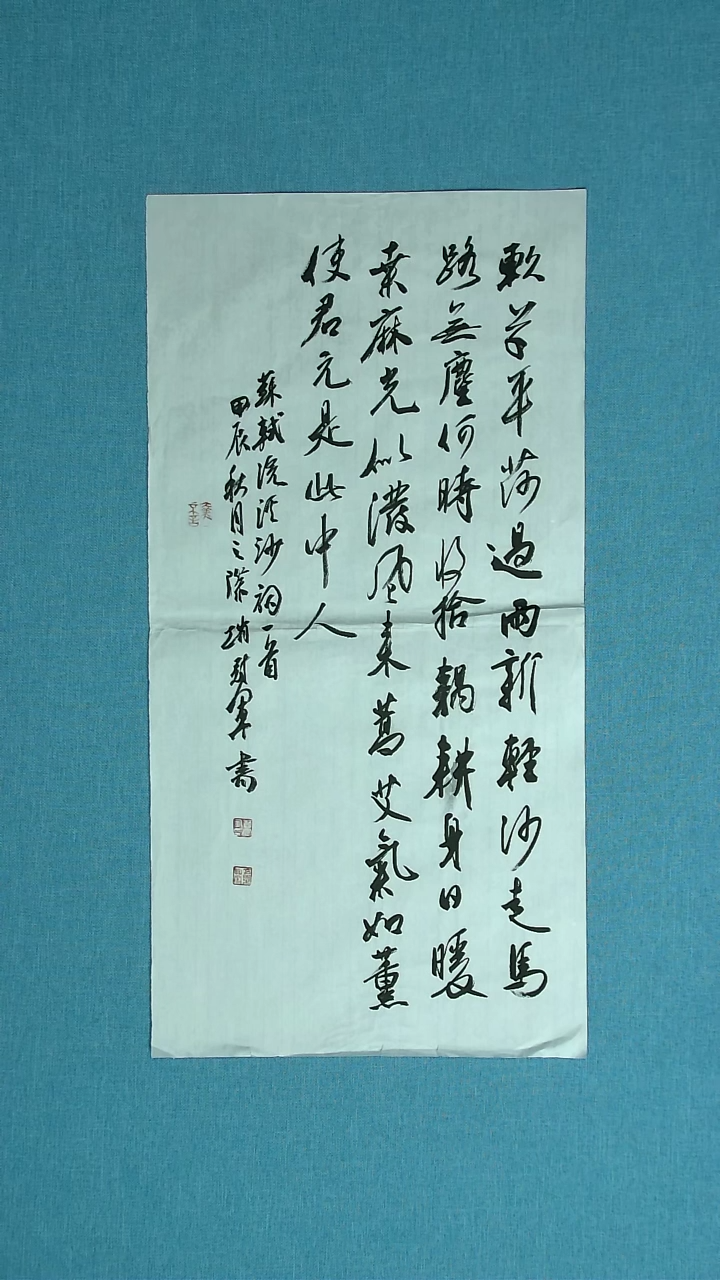 軟草平莎過雨新輕沙走馬
路無塵何時收拾耦耕身日暖
桑麻光似潑風來蒿艾氣如薰
使君元是此中人
蘇軾浣溪沙詞一首
甲辰秋月之際 軍書